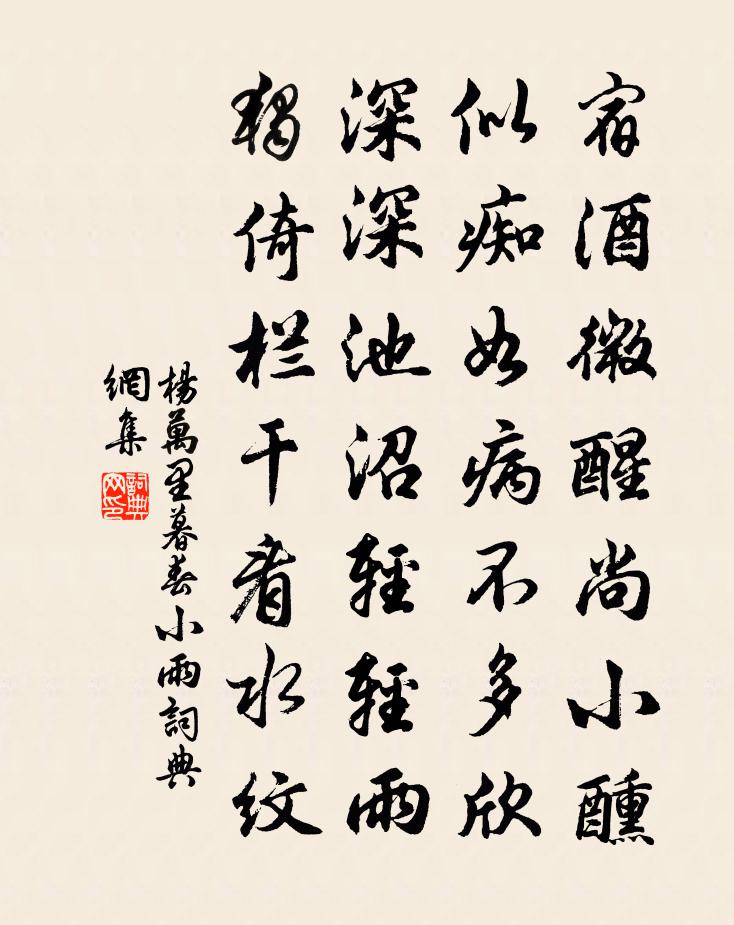 宿酒微醒尚小醺
似痴如病不多欣
深深池沼輕輕雨
獨倚栏干看水纹
楊萬里暮春小雨詞典
網集
詞典
网印